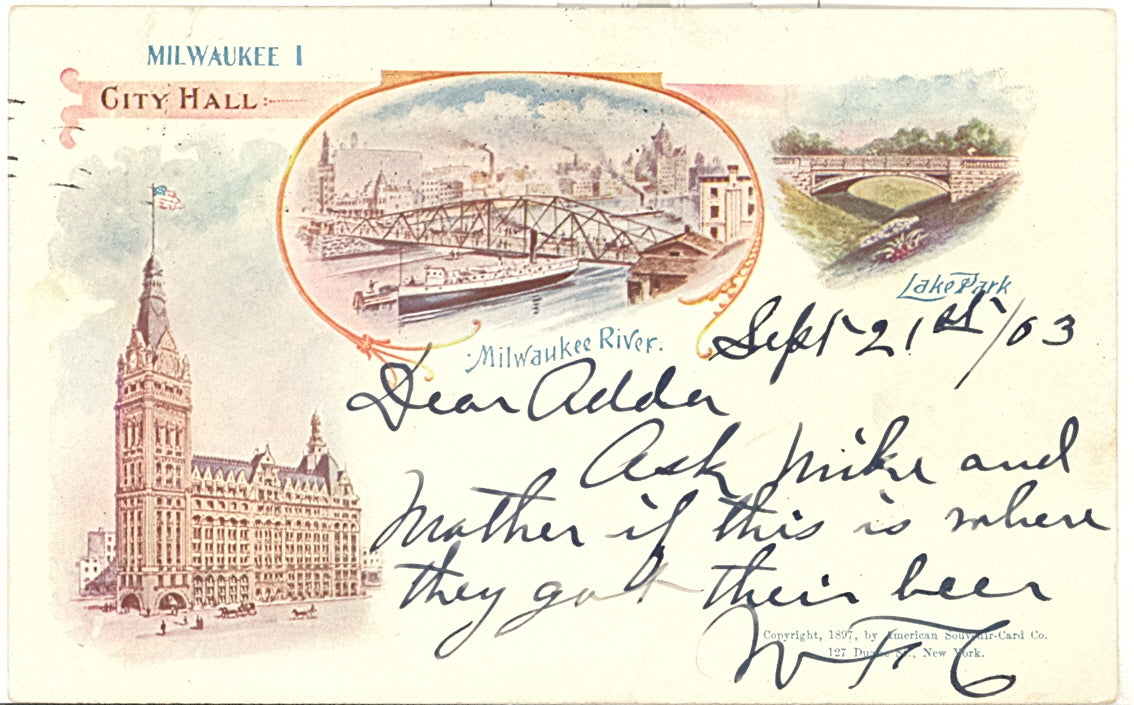 MILWAUKEE I
CITY HALL:
Milwaukee River.
Lake Park
Sept 21st/03
Dear Adda
Ask Mike and
Mother if this is where
they got their beer
Copyright, 1897, by American Souvenir-Card Co.
127 Duane St., New York.